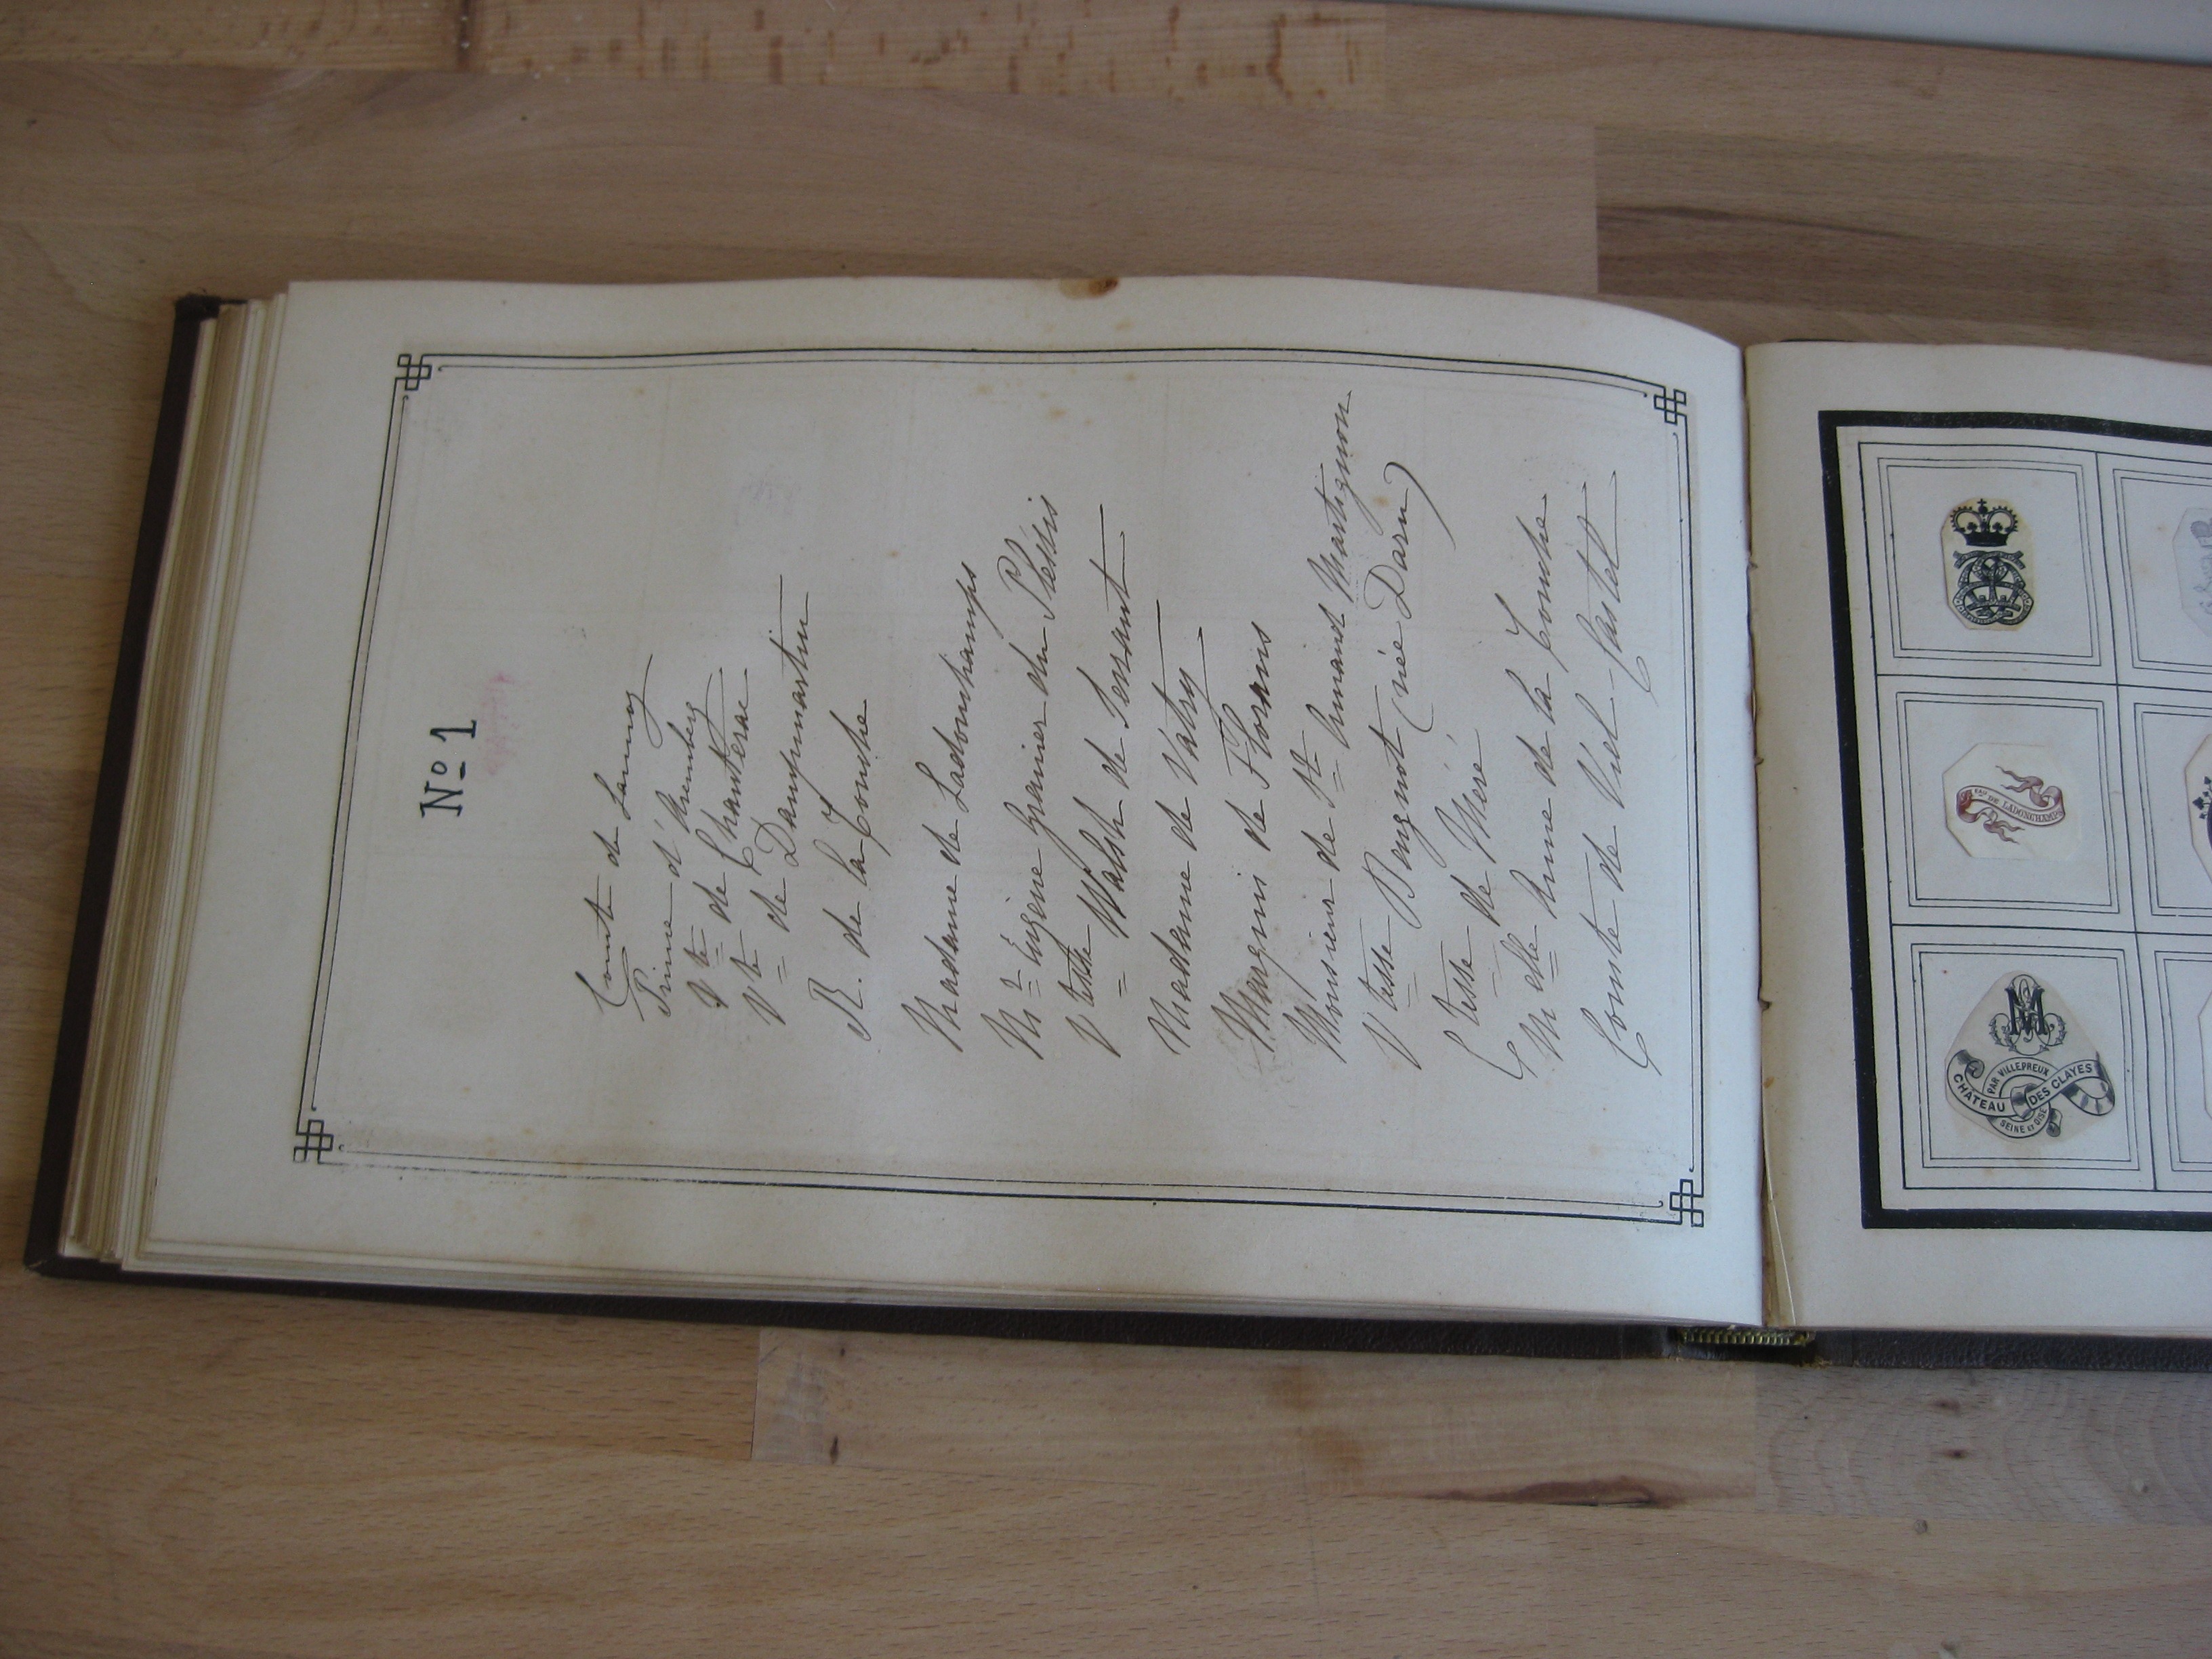 No 1
Comte de Lannoy
Prince d'Aremberg
Vte de Chanterac
Vte de Dampmartin
R. de la Touche
Madame de Ladonchamps
Mr Eugène Granier du Plessis
Vtesse Walsh de Serrant
Madame de Vatry
Marquis de Florans
Monsieur de St Amand Martignon
Vtesse Beugnot (née Daru)
Ctesse de Méré
Melle Anne de la Touche
Comte de Viel-Castel
EAU DE LADONCHAMPS
M
PAR VILLEPREUX
CHATEAU DES CLAYES
SEINE ET OISE